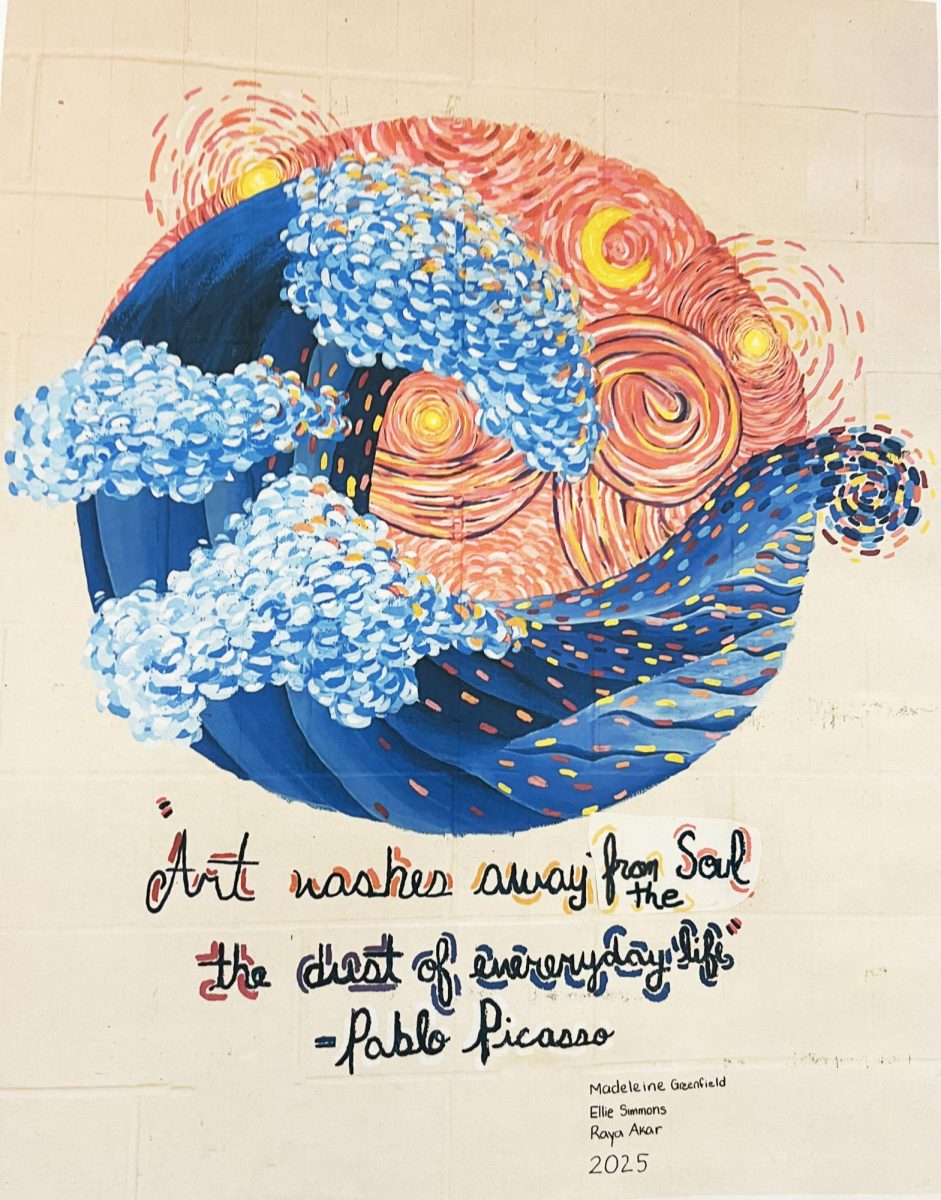 "Art washes away from Soul
the
the dust of evereryday life"
-Pablo Picasso
Madeleine Greenfield
Ellie Simmons
Raya Akar
2025